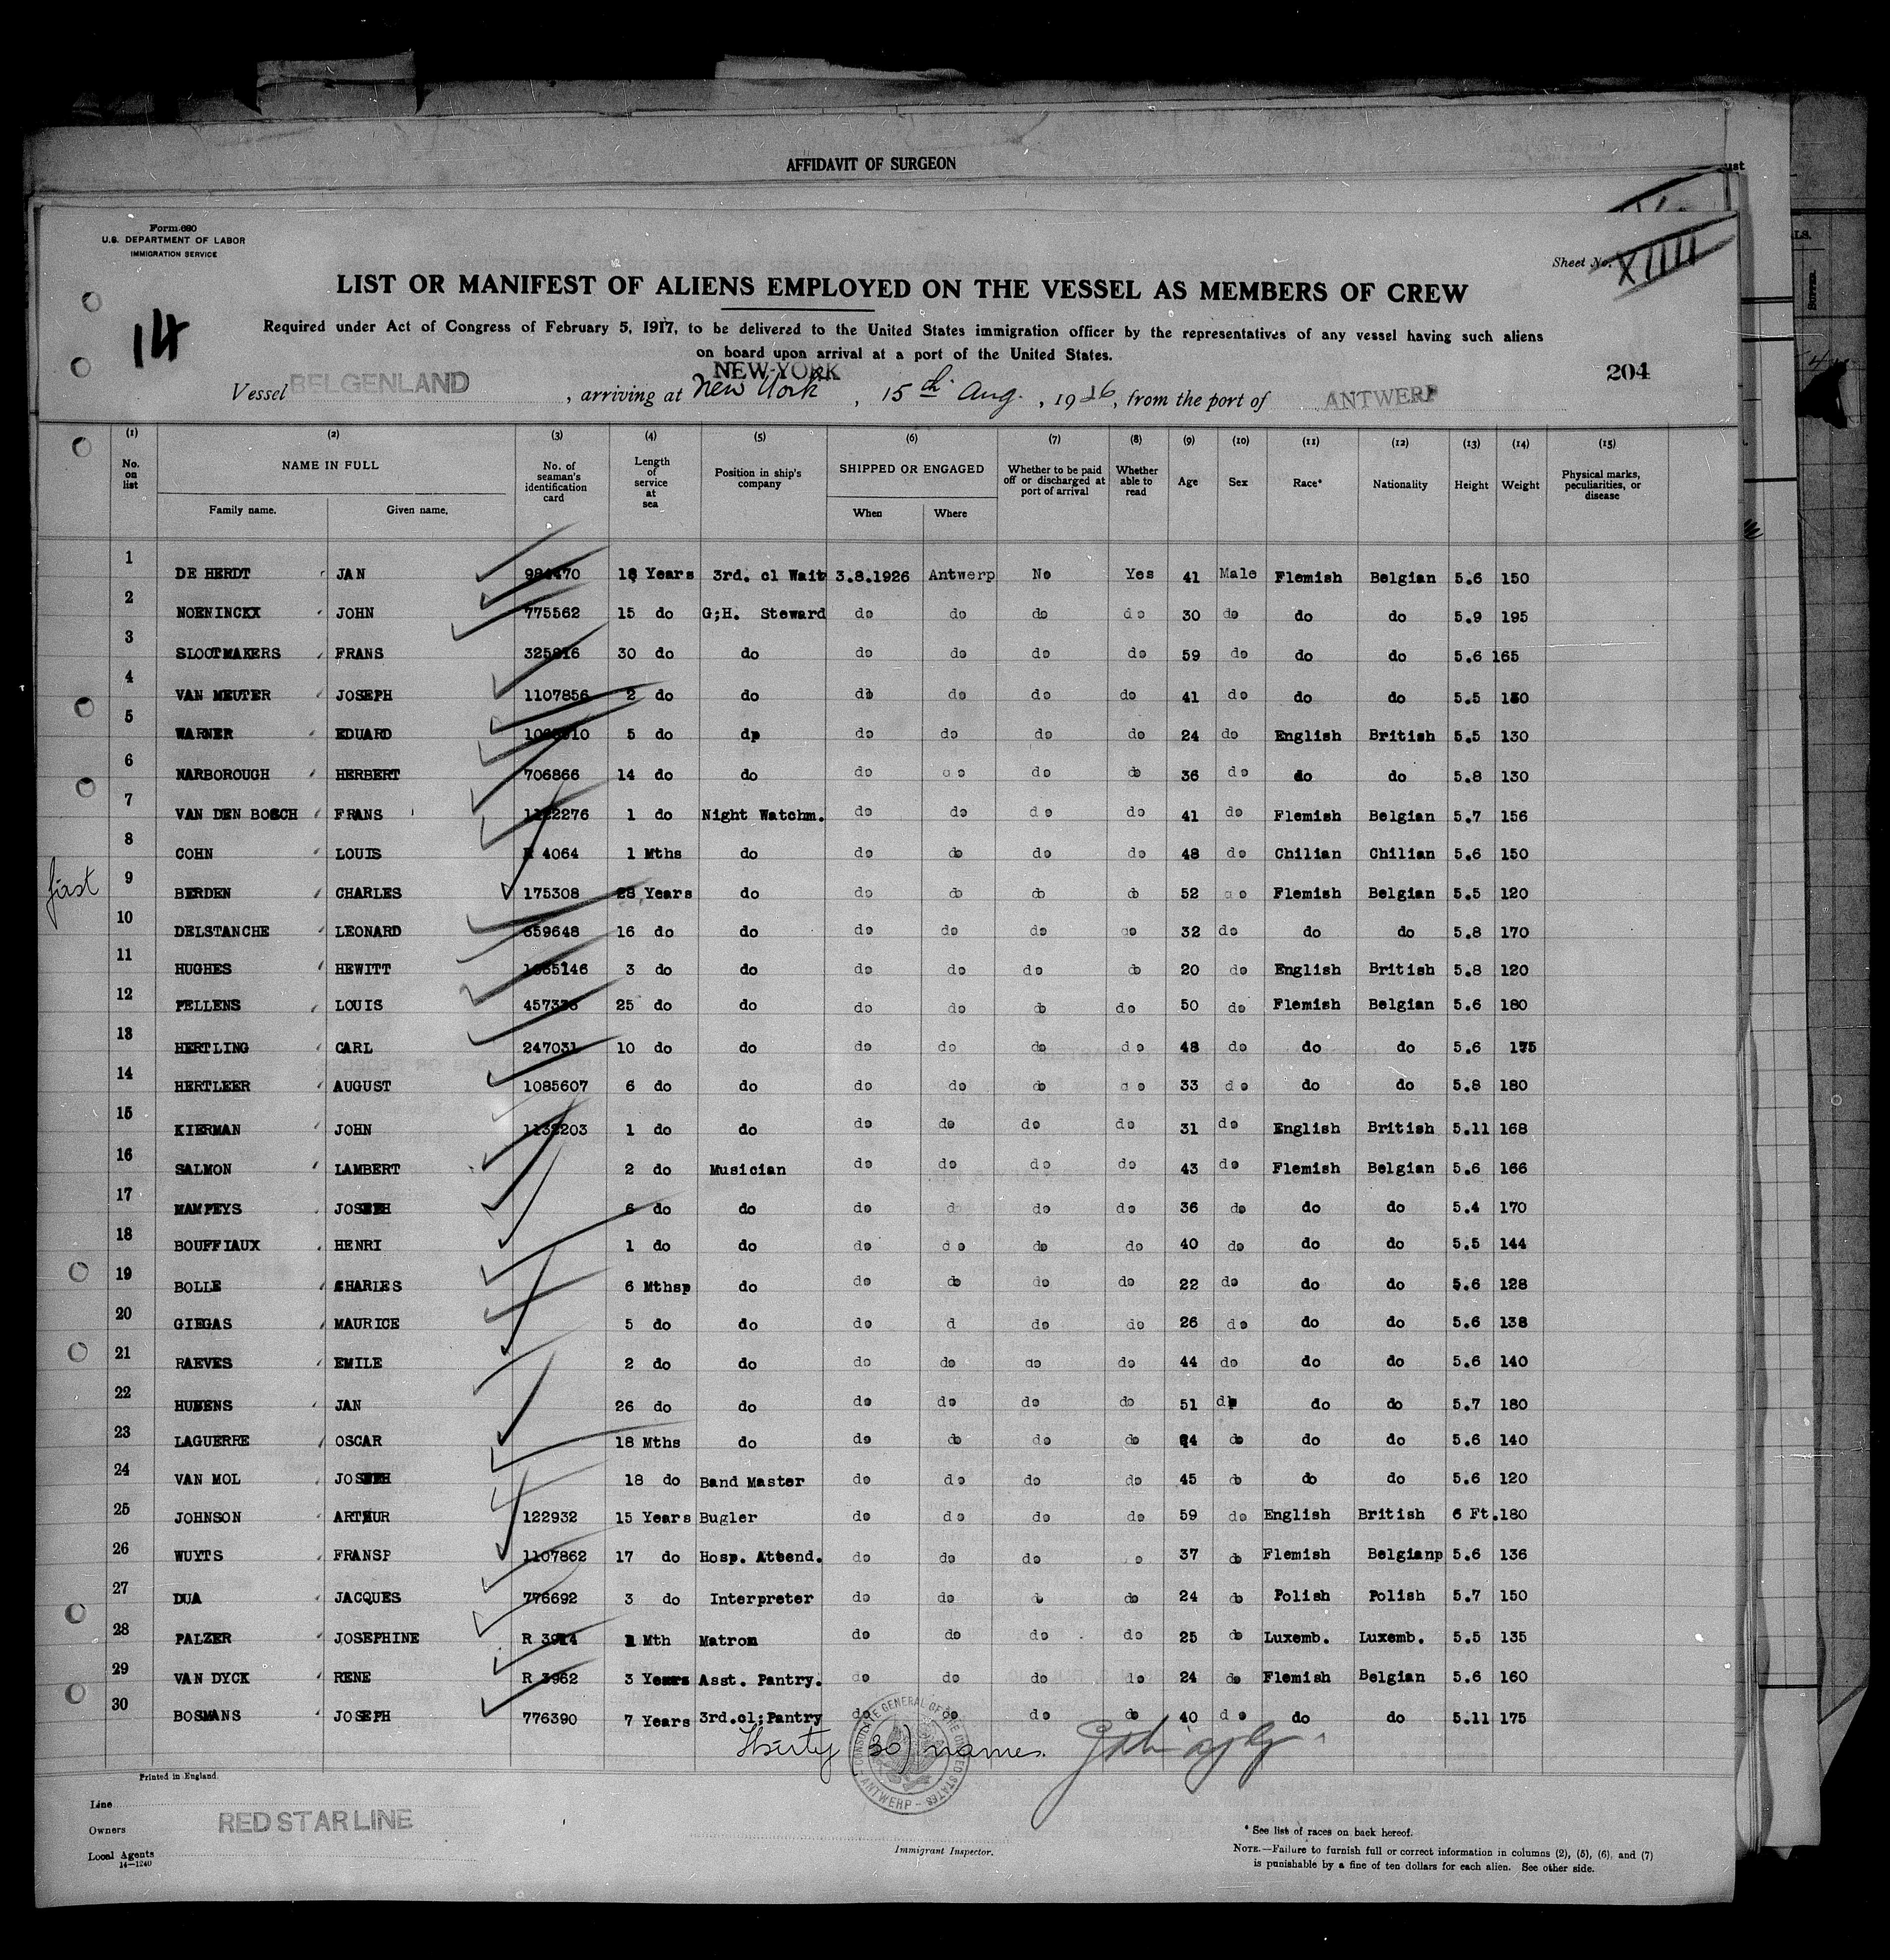 AFFIDAVIT OF SURGEON
Form 680
U.S. DEPARTMENT OF LABOR
IMMIGRATION SERVICE
Sheet No. XIIII
LIST OR MANIFEST OF ALIENS EMPLOYED ON THE VESSEL AS MEMBERS OF CREW
14
Required under Act of Congress of February 5, 1917, to be delivered to the United States immigration officer by the representatives of any vessel having such aliens
on board upon arrival at a port of the United States.
NEW-YORK
204
Vessel BELGENLAND, arriving at New York, 15th Aug., 1926, from the port of ANTWERP
(1) (2) (3) (4) (5) (6) (7) (8) (9) (10) (11) (12) (13) (14) (15)
No. on list NAME IN FULL Family name. Given name. No. of seaman's identification card Length of service at sea Position in ship's company SHIPPED OR ENGAGED When Where Whether to be paid off or discharged at port of arrival Whether able to read Age Sex Race* Nationality Height Weight Physical marks, peculiarities, or disease
1 DE HERDT JAN 984470 18 Years 3rd. cl Wait 3.8.1926 Antwerp No Yes 41 Male Flemish Belgian 5.6 150
2 NOENINCKX JOHN 775562 15 do G;H. Steward do do do do 30 do do do 5.9 195
3 SLOOTMAKERS FRANS 325916 30 do do do do do do 59 do do do 5.6 165
4 VAN MEUTER JOSEPH 1107856 2 do do do do do do 41 do do do 5.5 130
5 WARNER EDUARD 5 do dp do do do do 24 do English British 5.5 130
6 NARBOROUGH HERBERT 706866 14 do do do do do do 36 do do do 5.8 130
7 VAN DEN BOSCH FRANS 1122276 1 do Night Watchm. do do do do 41 do Flemish Belgian 5.7 156
8 COHN LOUIS R 4064 1 Mths do do do do do 48 do Chilian Chilian 5.6 150
first
9 BERDEN CHARLES 175308 28 Years do do do do do 52 do Flemish Belgian 5.5 120
10 DELSTANCHE LEONARD 659648 16 do do do do do do 32 do do do 5.8 170
11 HUGHES HEWITT 1065146 3 do do do do do do 20 do English British 5.8 120
12 PELLENS LOUIS 457336 25 do do do do do do 50 do Flemish Belgian 5.6 180
13 HERTLING CARL 247031 10 do do do do do do 48 do do do 5.6 175
14 HERTLEER AUGUST 1085607 6 do do do do do do 33 do do do 5.8 180
15 KIERMAN JOHN 1132203 1 do do do do do do 31 do English British 5.11 168
16 SALMON LAMBERT 2 do Musician do do do do 43 do Flemish Belgian 5.6 166
17 MAMPEYS JOSEPH 6 do do do d do do 36 do do do 5.4 170
18 BOUFFIAUX HENRI 1 do do do do do do 40 do do do 5.5 144
19 BOLLE CHARLES 6 Mthsp do do do do do 22 do do do 5.6 128
20 GIEGAS MAURICE 5 do do do d do do 26 do do do 5.6 138
21 RAEVES EMILE 2 do do do do do do 44 do do do 5.6 140
22 HUBENS JAN 26 do do do do do do 51 dp do do 5.7 180
23 LAGUERRE OSCAR 18 Mths do do do do do 24 do do do 5.6 140
24 VAN MOL JOSEPH 18 do Band Master do do do do 45 do do do 5.6 120
25 JOHNSON ARTHUR 122932 15 Years Bugler do do do do 59 do English British 6 Ft. 180
26 WUYTS FRANSP 1107862 17 do Hosp. Attend. do do do do 37 do Flemish Belgianp 5.6 136
27 DUA JACQUES 776692 3 do Interpreter do do do do 24 do Polish Polish 5.7 150
28 PALZER JOSEPHINE R 3914 1 Mth Matron do do do do 25 do Luxemb. Luxemb. 5.5 135
29 VAN DYCK RENE R 3962 3 Years Asst. Pantry. do do do do 24 do Flemish Belgian 5.6 160
30 BOSMANS JOSEPH 776390 7 Years 3rd.cl;Pantry do do do do 40 do do do 5.11 175
Thirty (30) names.
CONSULATE GENERAL OF THE UNITED STATES ANTWERP
Printed in England.
Line
Owners RED STAR LINE
Local Agents
14—1240
Immigrant Inspector.
* See list of races on back hereof.
NOTE.—Failure to furnish full or correct information in columns (2), (5), (6), and (7)
is punishable by a fine of ten dollars for each alien. See other side.